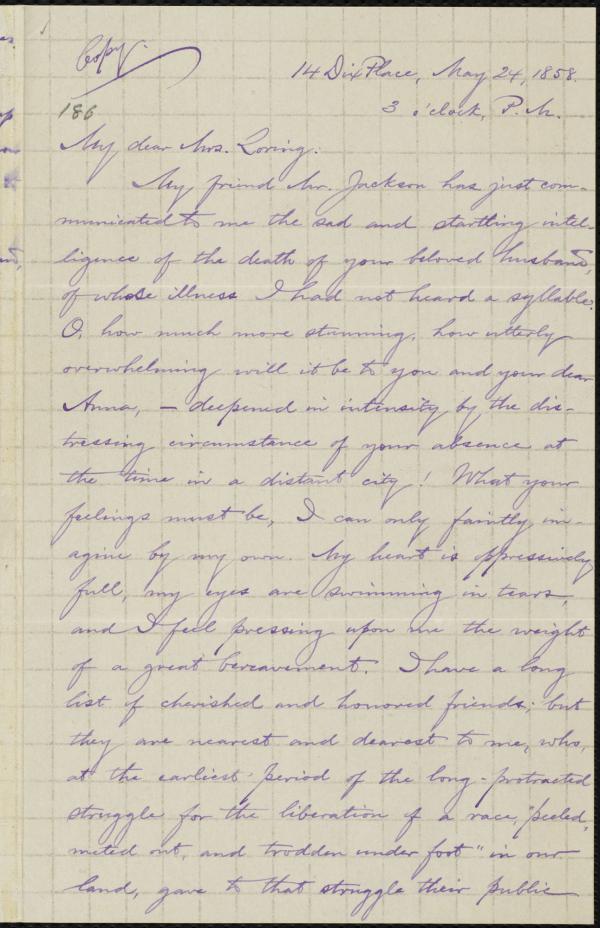 Copy.
14 Dix Place, May 24, 1858.
186
3 o'clock, P. M.
My dear Mrs. Loring:
My friend Mr. Jackson has just com-
municated to me the sad and startling intel-
ligence of the death of your beloved husband,
of whose illness I had not heard a syllable.
O, how much more stunning, how utterly
overwhelming will it be to you and your dear
Anna, — deepened in intensity by the dis-
tressing circumstance of your absence at
the time in a distant city! What your
feelings must be, I can only faintly im-
agine by my own. My heart is oppressively
full, my eyes are swimming in tears,
and I feel pressing upon me the weight
of a great bereavement. I have a long
list of cherished and honored friends; but
they are nearest and dearest to me, who,
at the earliest period of the long-protracted
struggle for the liberation of a race, "peeled,
meted out, and trodden under foot" in our
land, gave to that struggle their public